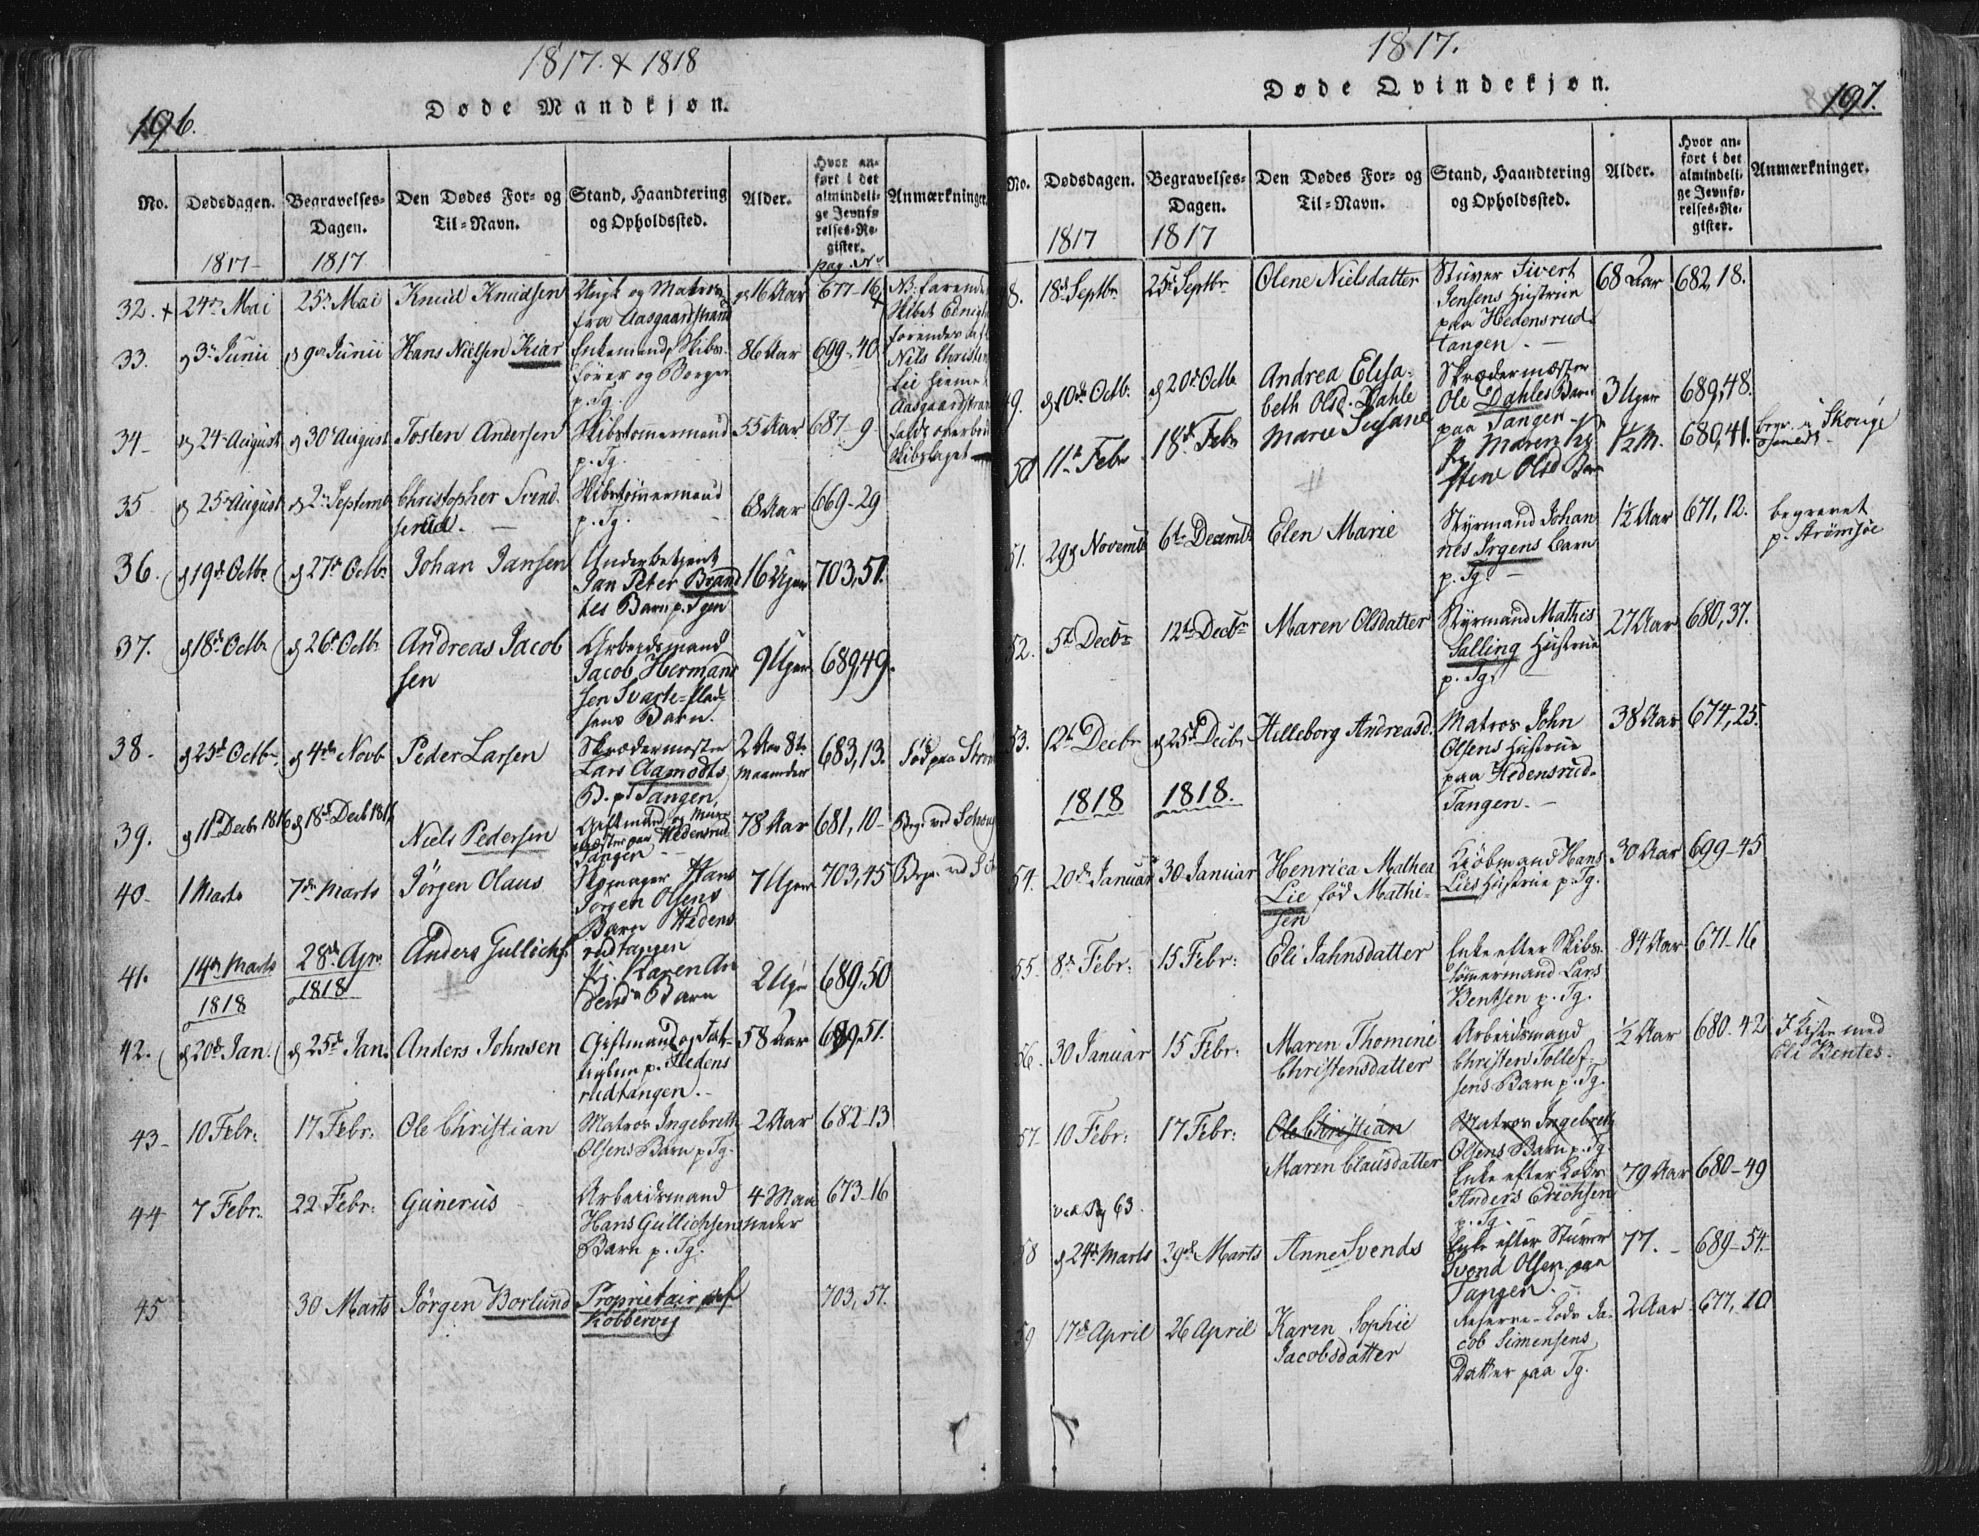 1817. & 1818
Døde Mandkjøn.
196.
No.
Dødsdagen.
1817
Begravelses-
Dagen.
1817
Den Dødes For- og
Til-Navn.
Stand, Haandtering
og Opholdssted.
Alder.
Hvor an-
ført i det
almindeli-
ge Jevnfø-
relses-Re-
gister.
pag. No
Anmærkninger.
32. + 24de Mai 25de Mai Knud Knudsen
fra Aasgaardstrand
16 Aar 677-16
33. 3de Junii 9de Junii Hans Nielsen Kiær
Enkemand, Skibs-
fører og Borger
p. Tg.
86 Aar 699-40
Nils Christen
Lie
Aasgaardstran
34 24de August 30te August Tosten Andersen
Skibstømmermand
p. Tg.
55 Aar 687-9
35 25de August 2den Septemb Christopher Svend
serud.
Skibstømmermand
p. Tg.
68 Aar 669-29
36. 19de Octbr 27de Octbr Johan Jansen
Underbetjent
Jan Peter Brand
tes Barn p. Tgen
16 Uger 703,51.
37. 18de Octbr 26de Octbr Andreas Jacob
sen
Arbeidsmand
Jacob Herman
sen Barn.
9 Uger 689,49.
38. 25de Octbr 4de Novb Peder Larsen
Skrædermester
Lars Aamodts
B. p. Tangen
2 Aar 8te
Maaneder
683,13. Fød paa Strøm
39. 11te Decbr 1816 18de Decb 1816
Niels Pedersen
Giftmand og Muur
mester paa Hedensrud
Tangen
78 Aar 681,10
40. 1 Marts 7de Marts Jörgen Olaus
Hans
Jørgen Olsens
Barn Hedens
rudtangen
7 Uger 703,45
41. 14de Marts
1818
28de Apr.
1818
Anders Gullichs.
Pg. Karen An
dersd. Barn
2 Uger 689,50
42. 20de Jan. 25de Jan. Anders Johnsen
Giftmand og
p. Hedens
rudtangen.
58 Aar 689-51.
43- 10 Febr: 17 Febr: Ole Christian
Matros Ingebrett
Olsens Barn p Tg.
2 Aar 682-13
44 7 Febr. 22 Febr: Gunerus
Arbeidsmand
Hans Gullichsens
Barn p. Tg.
4 Maa
neder
673-16
45 30 Marts Jörgen Borlund
Proprietair af
Kobbervig
703, 57.
1817.
Døde Qvindekjøn.
197.
No.
Dødsdagen.
1817
Begravelses-
Dagen.
1817
Den Dødes For- og
Til-Navn.
Stand, Haandtering
og Opholdssted.
Alder.
Hvor an-
ført i det
almindeli-
ge Jevnfø-
relses-Re-
gister.
Anmærkninger.
48. 18de Septbr 25de Septbr Olene Nielsdatter
Stuver Sivert
Jensens Hustrue
paa Hedensrud-
tangen.
68 Aar 682,18.
49. 10de Octb. 20de Octb Andrea Elisa-
beth Olsd. Dahle
Skrædermæster
Ole Dahles Barn
paa Tangen
3 Uger 689,48.
50 11te Febr 18de Febr Marie Susane
Pg. Maren Kir
stine Olsd Barn
1½ M. 680,41.
Skouge
51. 29de Novemb 6te Decemb Elen Marie
Styrmand Johan
nes Irgens Barn
p. Tg.
1½ Aar 671,12.
begravet
p. Strømsøe
52. 5te Decbr 12te Decbr Maren Olsdatter
Styrmand Mathis
Salling Hustrue
p. Tg.
27 Aar 680,37.
53. 12te Decbr 25de Decbr Hilleborg Andreasd.
Matros John
Olsens Hustrue
paa Hedensrud-
Tangen.
38 Aar 674,25.
1818 1818.
54. 20de Januar 30 Januar Henrica Mathea
Lie fød Mathi-
sen
Kiøbmand Hans
Lies Hustrue p. Tg.
30 Aar 699-45
55. 8de Febr: 15 Febr: Eli Jahnsdatter
Enke efter Skibs-
tømmermand Lars
Bentsen p. Tg.
84 Aar 671-16
56. 30 Januar 15 Febr: Maren Thomine
Christensdatter
Arbeidsmand
Christen Tollef-
sens Barn p. Tg.
½ Aar 680-42
I Kiste med
Eli Bentes.
57- 10 Febr: 17 Febr: Ole Christian
Matros Ingebrett
Olsens Barn p. Tg.
Maren Clausdatter
Enke efter Lods
Anders Erichsen
p. Tg.
79 Aar 680-49
ved Pg 63.
58 24de Marts 29de Marts Anne Svends
Enke efter Stuver
Svend Olsen paa
Tangen.
77. 689-54
59 17de April 26 April Karen Sophie
Jacobsdatter
Reserve-Lods Ja-
cob Simensens
Datter paa Tg.
2 Aar 677, 20